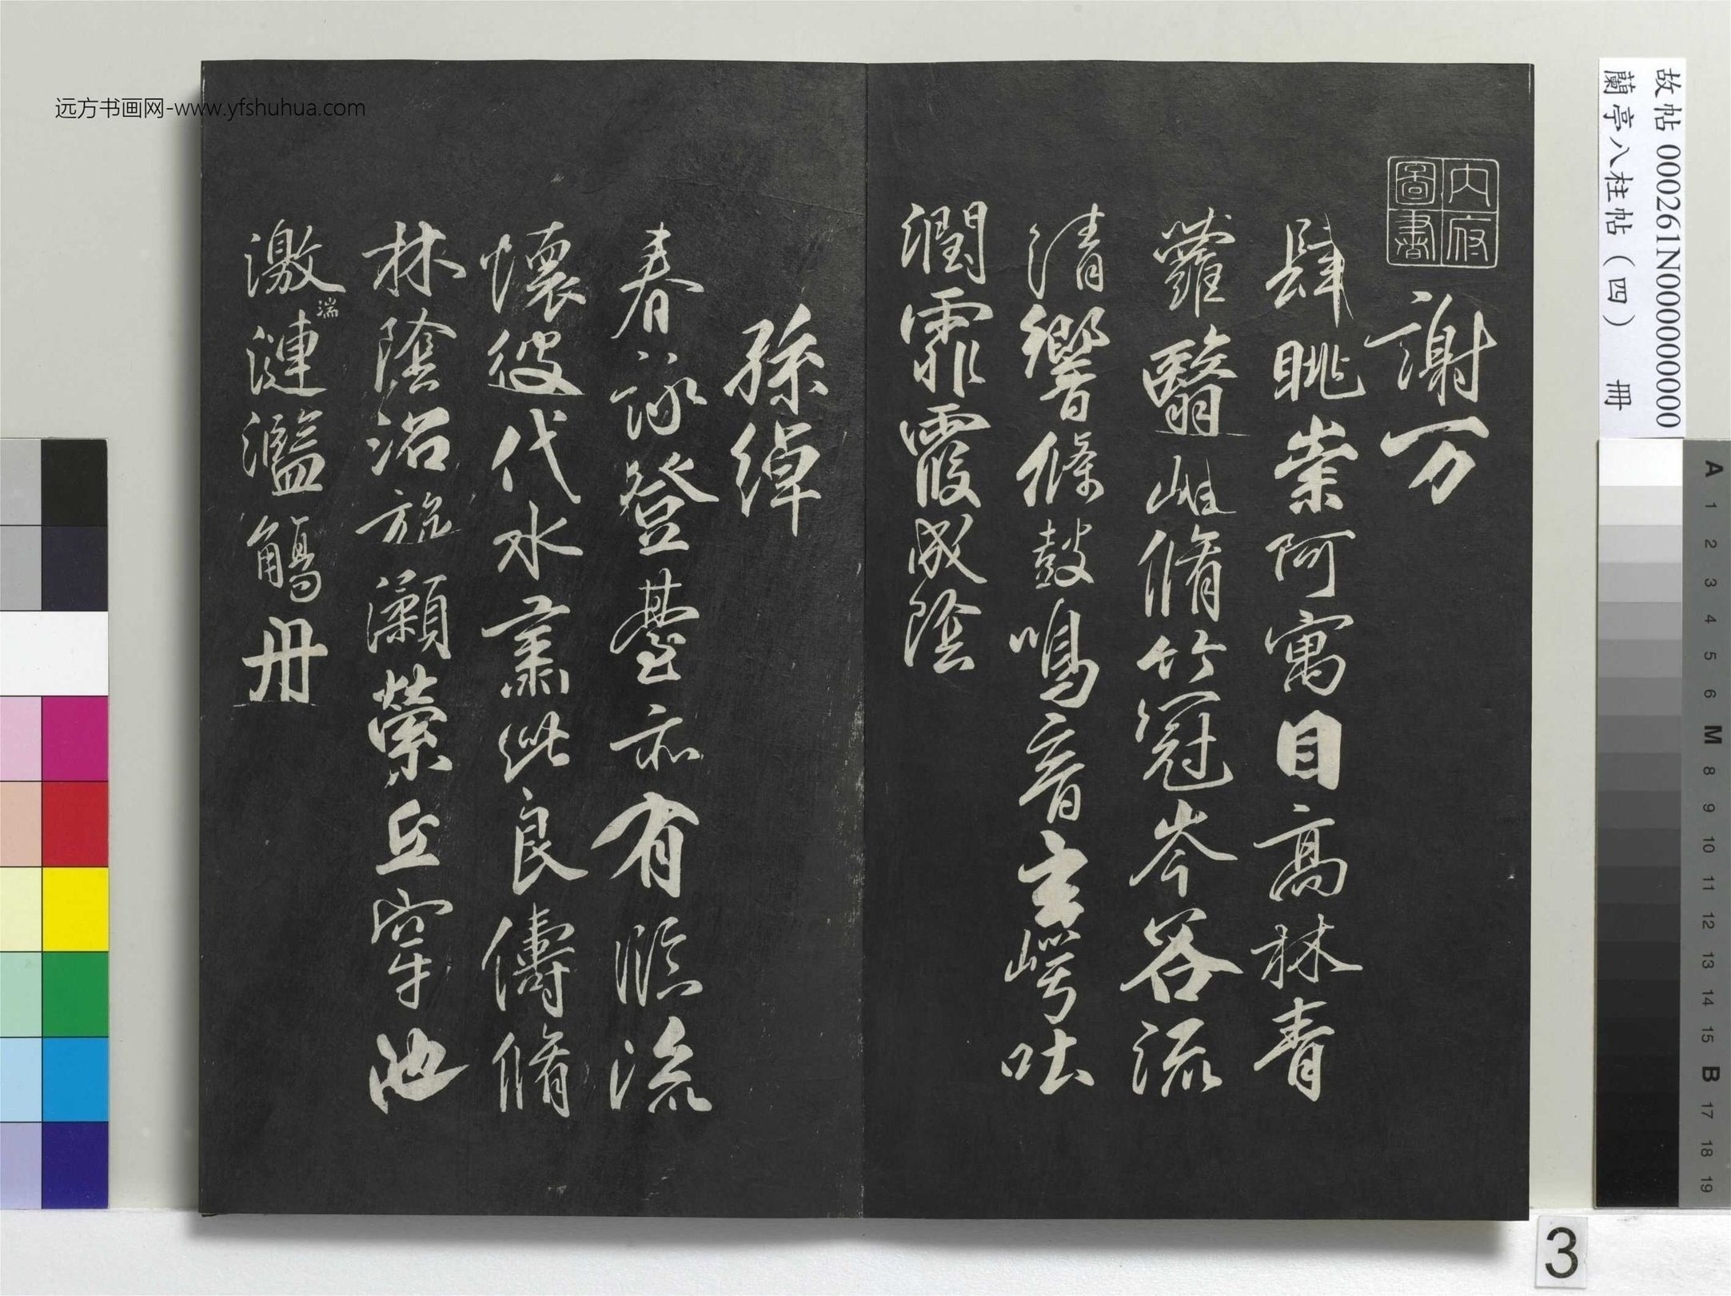 远方书画网-www.yfshuhua.com
故帖 000261N000000000
蘭亭八柱帖(四) 冊
內府圖書
謝万
肆眺崇阿寓目高林青
蘿翳岫脩竹冠岑谷流
清響條鼓鳴音玄崿吐
潤霏霞成陰
孫綽
春詠登臺亦有臨流
懷彼代水肅此良儔脩
林陰沼旋瀨縈丘穿池
激湍漣濫觴舟
3
A 1 2 3 4 5 6 M 8 9 10 11 12 13 14 15 B 17 18 19